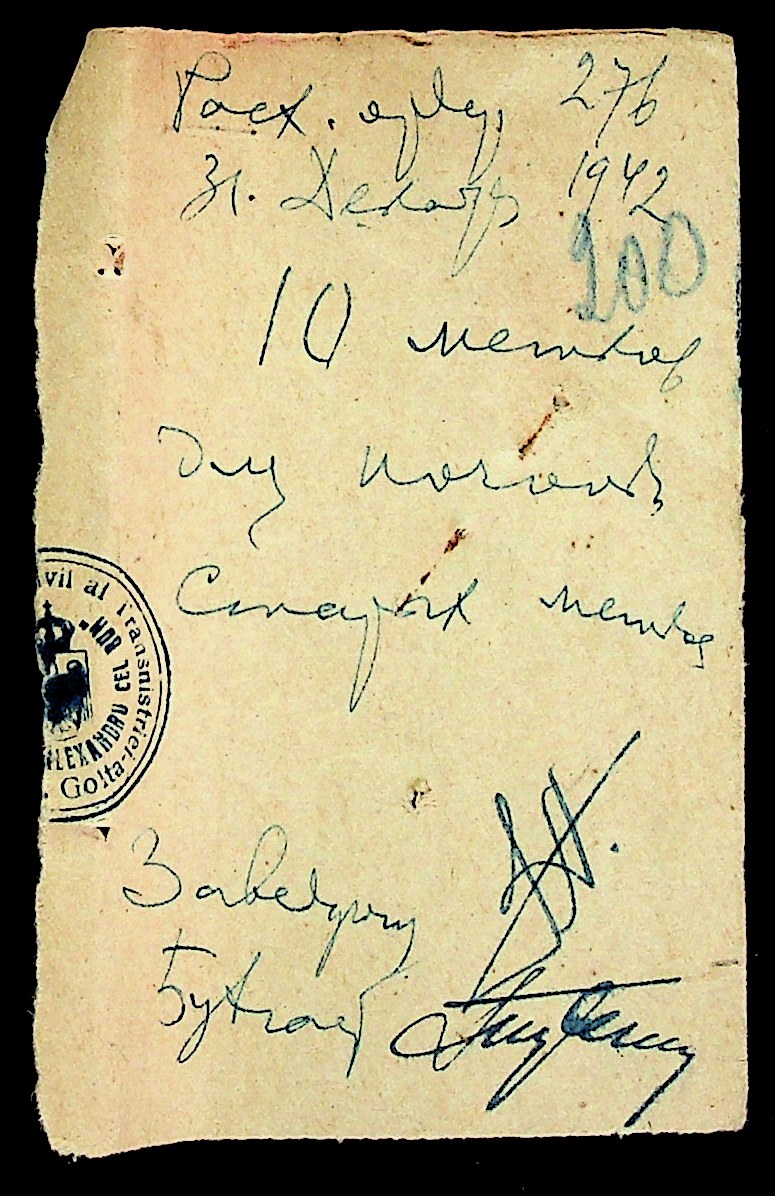 Расх. ордер 276
31. Декабрь 1942
200
10 метров
для
Старых метров
vil al Transnistriei
ALEXANDRU CEL BUN
Golta
Заведующий
Бухгалтер